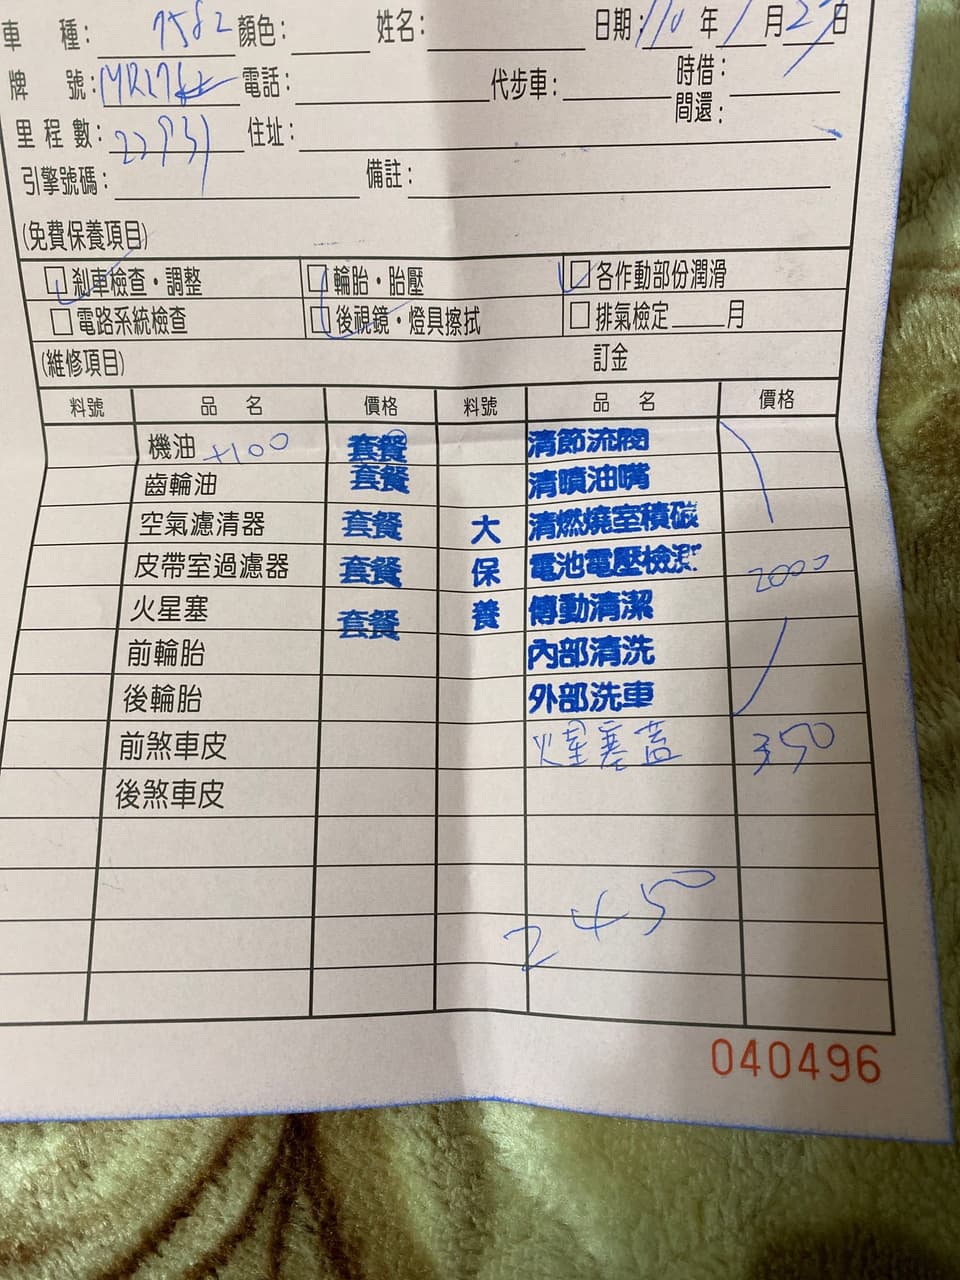 車 種: 顏色: 姓名: 日期: 110 年 1 月 27 日
牌 號: 電話: 代步車: 時借:
間還:
里程數: 22931 住址:
引擎號碼: 備註:
(免費保養項目)
剎車檢查・調整 輪胎・胎壓 各作動部份潤滑
電路系統檢查 後視鏡・燈具擦拭 排氣檢定____月
(維修項目) 訂金
料號 品 名 價格 料號 品 名 價格
機油 +100 套餐 清節流閥
齒輪油 套餐 清噴油嘴
空氣濾清器 套餐 大 清燃燒室積碳
皮帶室過濾器 套餐 保 電池電壓檢測 2000
火星塞 套餐 養 傳動清潔
前輪胎 內部清洗
後輪胎 外部洗車
前煞車皮 火星塞蓋 350
後煞車皮
2450
040496